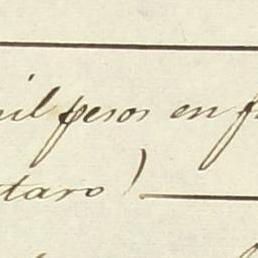 mil pesos en f
taro)